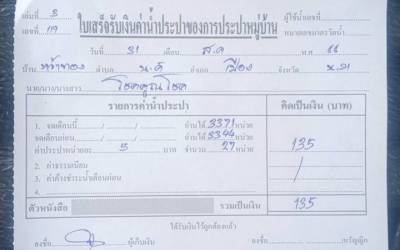 เล่มที่ 3
เลขที่ 119
ใบเสร็จรับเงินค่าน้ำประปาของการประปาหมู่บ้าน
ผู้ใช้น้ำเลขที่
หมายเลขมาตรวัดน้ำ
วันที่ 31 เดือน ส.ค พ.ศ. 44
บ้าน ตำบล น.ดี อำเภอ เมือง จังหวัด น.ภ
นาย/นาง/นางสาว โชคคูณโชค
รายการค่าน้ำประปา คิดเป็นเงิน (บาท)
1. จดเดือนนี้ / / อ่านได้ 3371 หน่วย
จดเดือนก่อน / / อ่านได้ 3344 หน่วย
ค่าประปาหน่วยละ 5 บาท จำนวน 27 หน่วย 135
2. ค่าธรรมเนียม /
3. ค่าค้างชำระน้ำเดือนก่อน
4.
ตัวหนังสือ รวมเป็นเงิน 135
ได้รับเงินไว้ถูกต้องแล้ว
ลงชื่อ ผู้เก็บเงิน ลงชื่อ เหรัญญิก